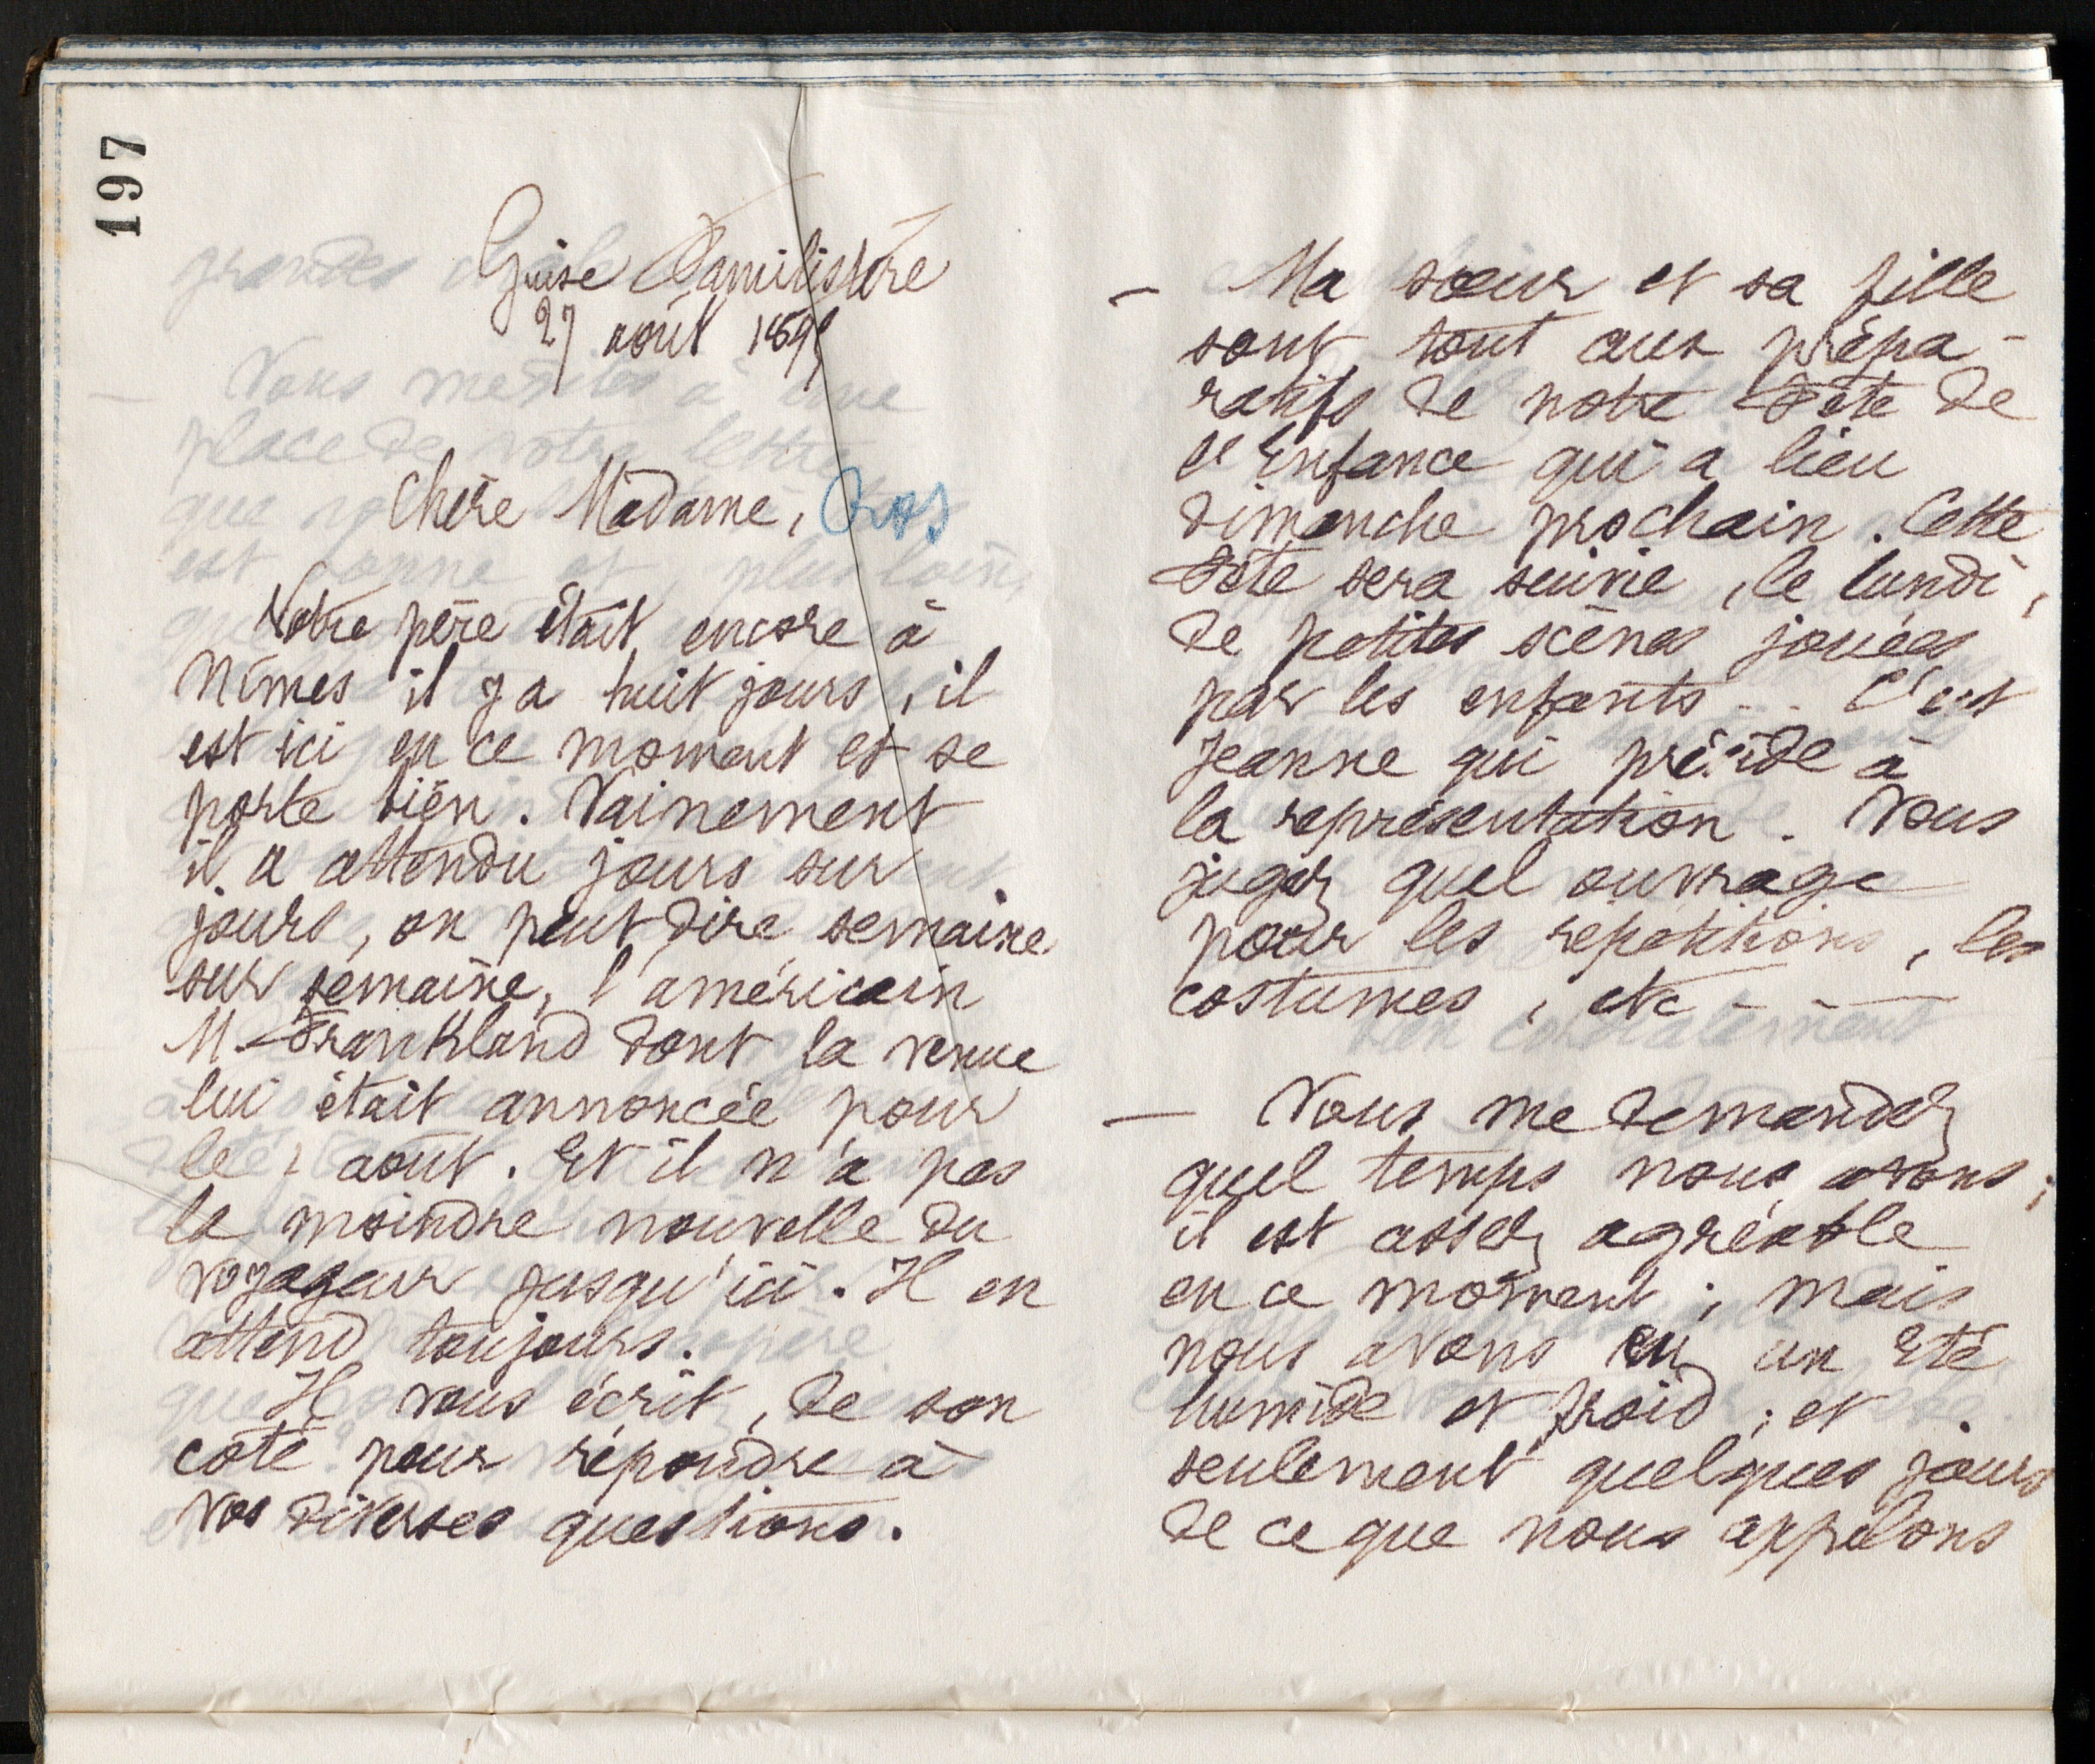 197
Guise Familistère
27 août 189
Chère Madame, Cros
Votre père était encore à
Nîmes il y a huit jours, il
est ici en ce moment et se
porte bien. Vainement
il a attendu jours sur
jours, on peut dire semaine
sur semaine, l'américain
M. Frankland dont la venue
lui était annoncée pour
le août. Et il n'a pas
la moindre nouvelle du
voyageur jusqu'ici. Il en
attend toujours.
Il vous écrit, de son
côté pour répondre à
vos diverses questions.
— Ma sœur et sa fille
sont tout aux prépa-
ratifs de notre Fête de
l'Enfance qui a lieu
dimanche prochain. Cette
Fête sera suivie, le lundi,
de petites scènes jouées
par les enfants.. C'est
Jeanne qui préside à
la représentation. Vous
jugez quel ouvrage
pour les répétitions, les
costumes, etc - - -
— Vous me demandez
quel temps nous avons;
il est assez agréable
en ce moment; mais
nous avons eu un Eté
humide et froid; et
seulement quelques jours
de ce que nous appelons